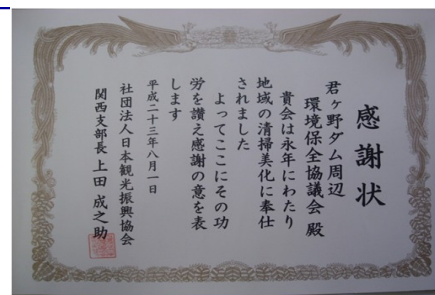 感謝状
君ヶ野ダム周辺
環境保全協議会 殿
貴会は永年にわたり
地域の清掃美化に奉仕
されました
よってここにその功
労を讃え感謝の意を表
します
平成二十三年八月一日
社団法人日本観光振興協会
関西支部長 上田 成之助